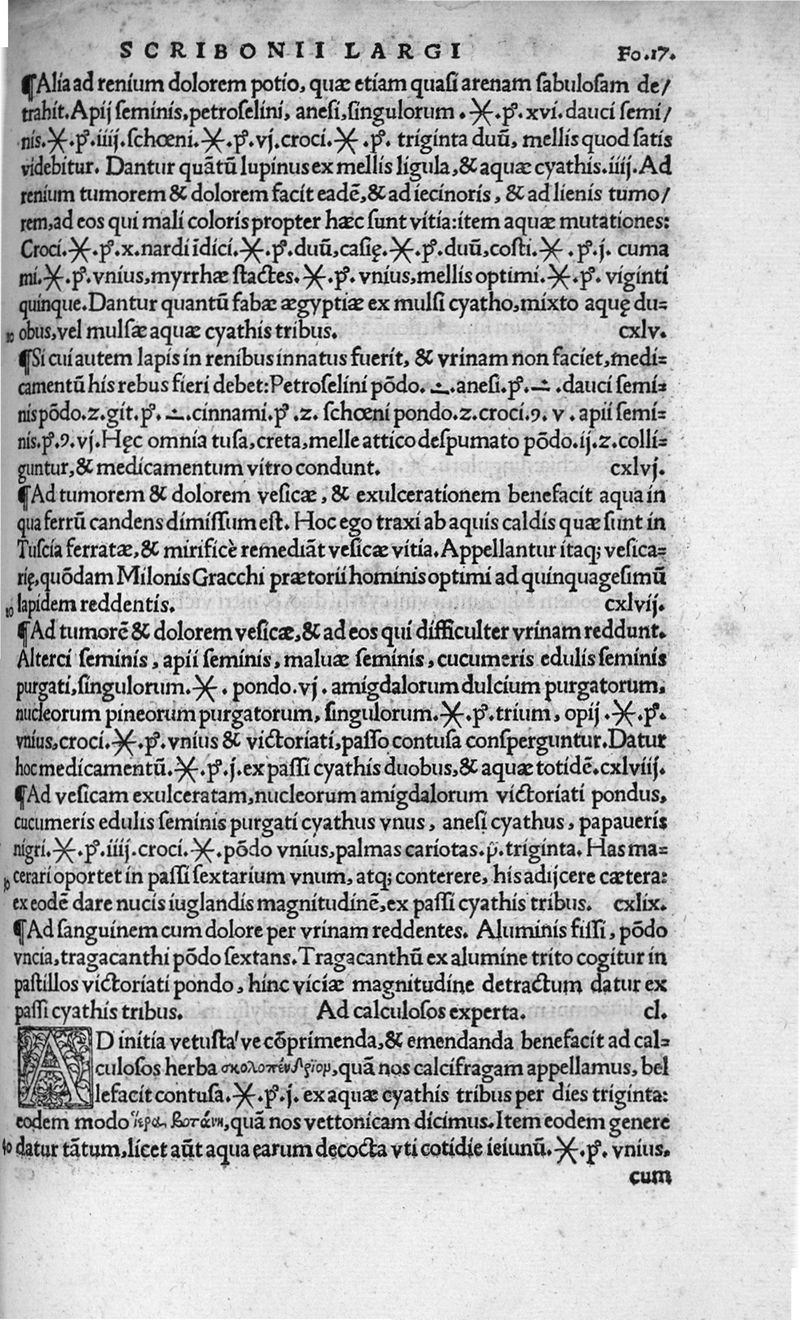 SCRIBONII LARGI Fo.17.
¶Alia ad renium dolorem potio, quæ etiam quasi arenam sabulosam de/
trahit. Apij seminis, petroselini, anesi, singulorum .X.p͛.xvi. dauci semi/
nis.X.p͛.iiij.schœni.X.p͛.vj.croci.X.p͛. triginta duū, mellis quod satis
videbitur. Dantur quātū lupinus ex mellis ligula, & aquæ cyathis.iiij.Ad
renium tumorem & dolorem facit eadē, & ad iecinoris, & ad lienis tumo/
rem, ad eos qui mali coloris propter hæc sunt vitia: item aquæ mutationes:
Croci.X.p͛.x.nardi īdici.X.p͛.duū, casię.X.p͛.duū, costi.X.p͛.j. cuma
mi.X.p͛.vnius, myrrhæ stactes.X.p͛. vnius, mellis optimi.X.p͛. viginti
quinque. Dantur quantū fabæ ægyptiæ ex mulsi cyatho, mixto aquę du-
10 obus, vel mulsæ aquæ cyathis tribus. cxlv.
¶Si cui autem lapis in renibus innatus fuerit, & vrinam non faciet, medi=
camentū his rebus fieri debet: Petroselini pōdo. ∸.anesi.p͛.∸.dauci semi=
nis pōdo.z.git.p͛.∸.cinnami.p͛.z. schœni pondo.z.croci.9. v. apii semi=
nis.p͛.9.vj. Hęc omnia tusa, creta, melle attico despumato pōdo.ij.z.colli=
guntur, & medicamentum vitro condunt. cxlvj.
¶Ad tumorem & dolorem vesicæ, & exulcerationem benefacit aqua in
qua ferrū candens dimissum est. Hoc ego traxi ab aquis caldis quæ sunt in
Tuscia ferratæ, & mirificè remediāt vesicæ vitia. Appellantur itaq; vesica=
rię, quōdam Milonis Gracchi prætorii hominis optimi ad quinquagesimū
20 lapidem reddentis. cxlvij.
¶Ad tumorē & dolorem vesicæ, & ad eos qui difficulter vrinam reddunt.
Alterci seminis, apii seminis, maluæ seminis, cucumeris edulis seminis
purgati, singulorum.X. pondo.vj. amigdalorum dulcium purgatorum,
nucleorum pineorum purgatorum, singulorum.X.p͛.trium, opij.X.p͛.
vnius, croci.X.p͛.vnius & victoriati, passo contusa consperguntur. Datur
hoc medicamentū.X.p͛.j.ex passi cyathis duobus, & aquæ totidē.cxlviij.
¶Ad vesicam exulceratam, nucleorum amigdalorum victoriati pondus,
cucumeris edulis seminis purgati cyathus vnus, anesi cyathus, papaueris
nigri.X.p͛.iiij.croci.X.pōdo vnius, palmas cariotas.p͛.triginta. Has ma=
30 cerari oportet in passi sextarium vnum, atq; conterere, his adijcere cætera:
ex eodē dare nucis iuglandis magnitudinē, ex passi cyathis tribus. cxlix.
¶Ad sanguinem cum dolore per vrinam reddentes. Aluminis fissi, pōdo
vncia, tragacanthi pōdo sextans. Tragacanthū ex alumine trito cogitur in
pastillos victoriati pondo, hinc viciæ magnitudine detractum datur ex
passi cyathis tribus. Ad calculosos experta. cl.
AD initia vetusta've cōprimenda, & emendanda benefacit ad cal=
culosos herba σκολοπένδριομ, quā nos calcifragam appellamus, bel
lefacit contusa.X.p͛.j. ex aquæ cyathis tribus per dies triginta:
eodem modo ἱερα βοτάνη, quā nos vettonicam dicimus. Item eodem genere
40 datur tātum, licet aūt aqua earum decocta vti cotidie ieiunū.X.p͛. vnius.
cum